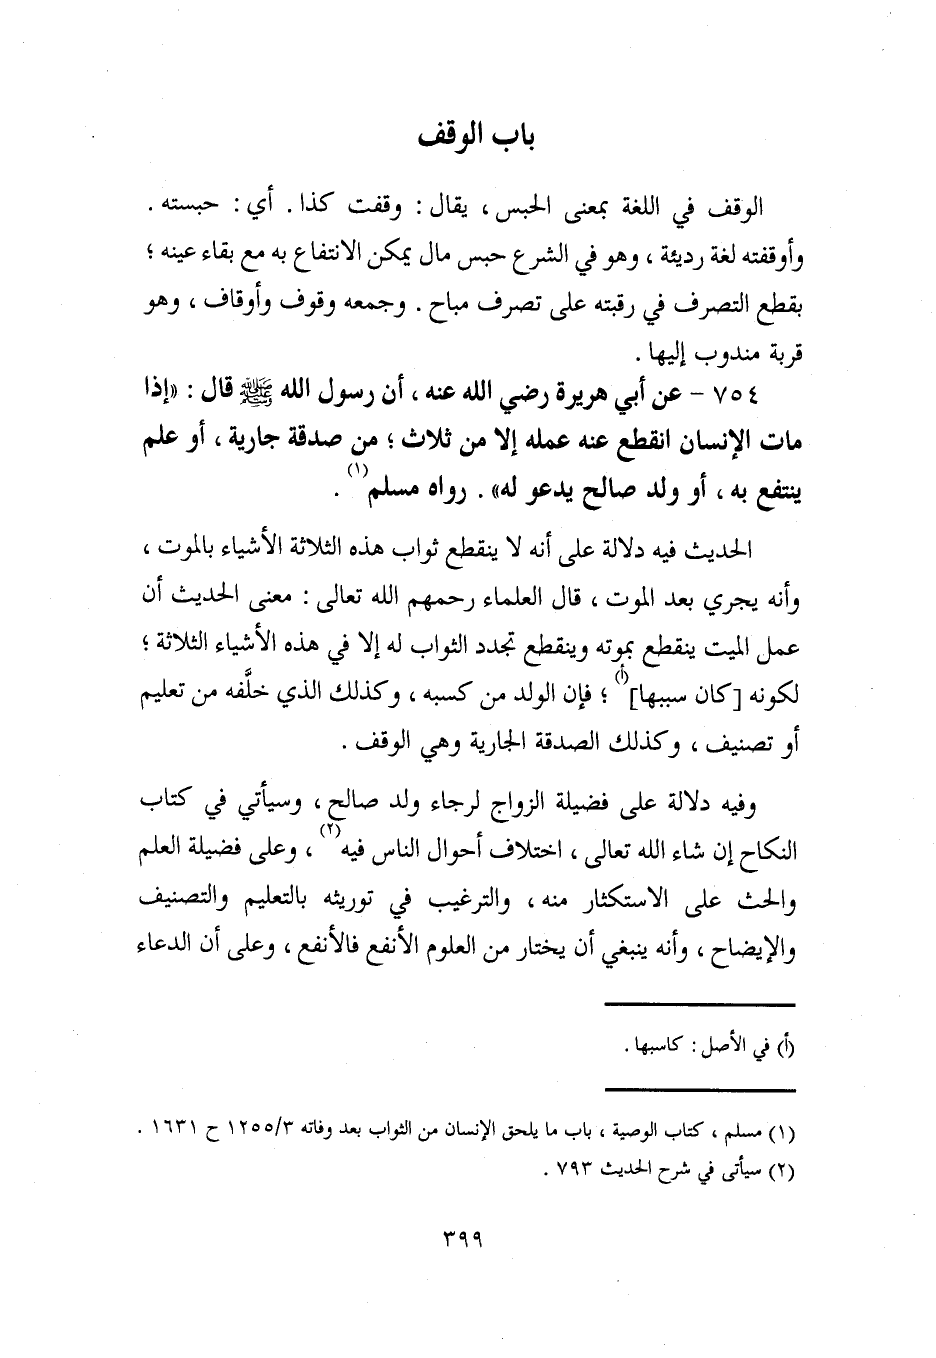 باب الوقف
الوقف في اللغة بمعنى الحبس ، يقال : وقفت كذا . أي : حبسته .
وأوقفته لغة رديئة ، وهو في الشرع حبس مال يمكن الانتفاع به مع بقاء عينه ؛
بقطع التصرف في رقبته على تصرف مباح . وجمعه وقوف وأوقاف ، وهو
قربة مندوب إليها .
٧٥٤ - عن أبي هريرة رضي الله عنه ، أن رسول الله ﷺ قال : «إذا
مات الإنسان انقطع عنه عمله إلا من ثلاث ؛ من صدقة جارية ، أو علم
ينتفع به ، أو ولد صالح يدعو له» . رواه مسلم(١) .
الحديث فيه دلالة على أنه لا ينقطع ثواب هذه الثلاثة الأشياء بالموت ،
وأنه يجري بعد الموت ، قال العلماء رحمهم الله تعالى : معنى الحديث أن
عمل الميت ينقطع بموته وينقطع تجدد الثواب له إلا في هذه الأشياء الثلاثة ؛
لكونه [كان سببها](أ) ؛ فإن الولد من كسبه ، وكذلك الذي خلَّفه من تعليم
أو تصنيف ، وكذلك الصدقة الجارية وهي الوقف .
وفيه دلالة على فضيلة الزواج لرجاء ولد صالح ، وسيأتي في كتاب
النكاح إن شاء الله تعالى ، اختلاف أحوال الناس فيه(٢) ، وعلى فضيلة العلم
والحث على الاستكثار منه ، والترغيب في توريثه بالتعليم والتصنيف
والإيضاح ، وأنه ينبغي أن يختار من العلوم الأنفع فالأنفع ، وعلى أن الدعاء
(أ) في الأصل : كاسبها .
(١) مسلم ، كتاب الوصية ، باب ما يلحق الإنسان من الثواب بعد وفاته ١٢٥٥/٣ ح ١٦٣١ .
(٢) سيأتى في شرح الحديث ٧٩٣ .
٣٩٩